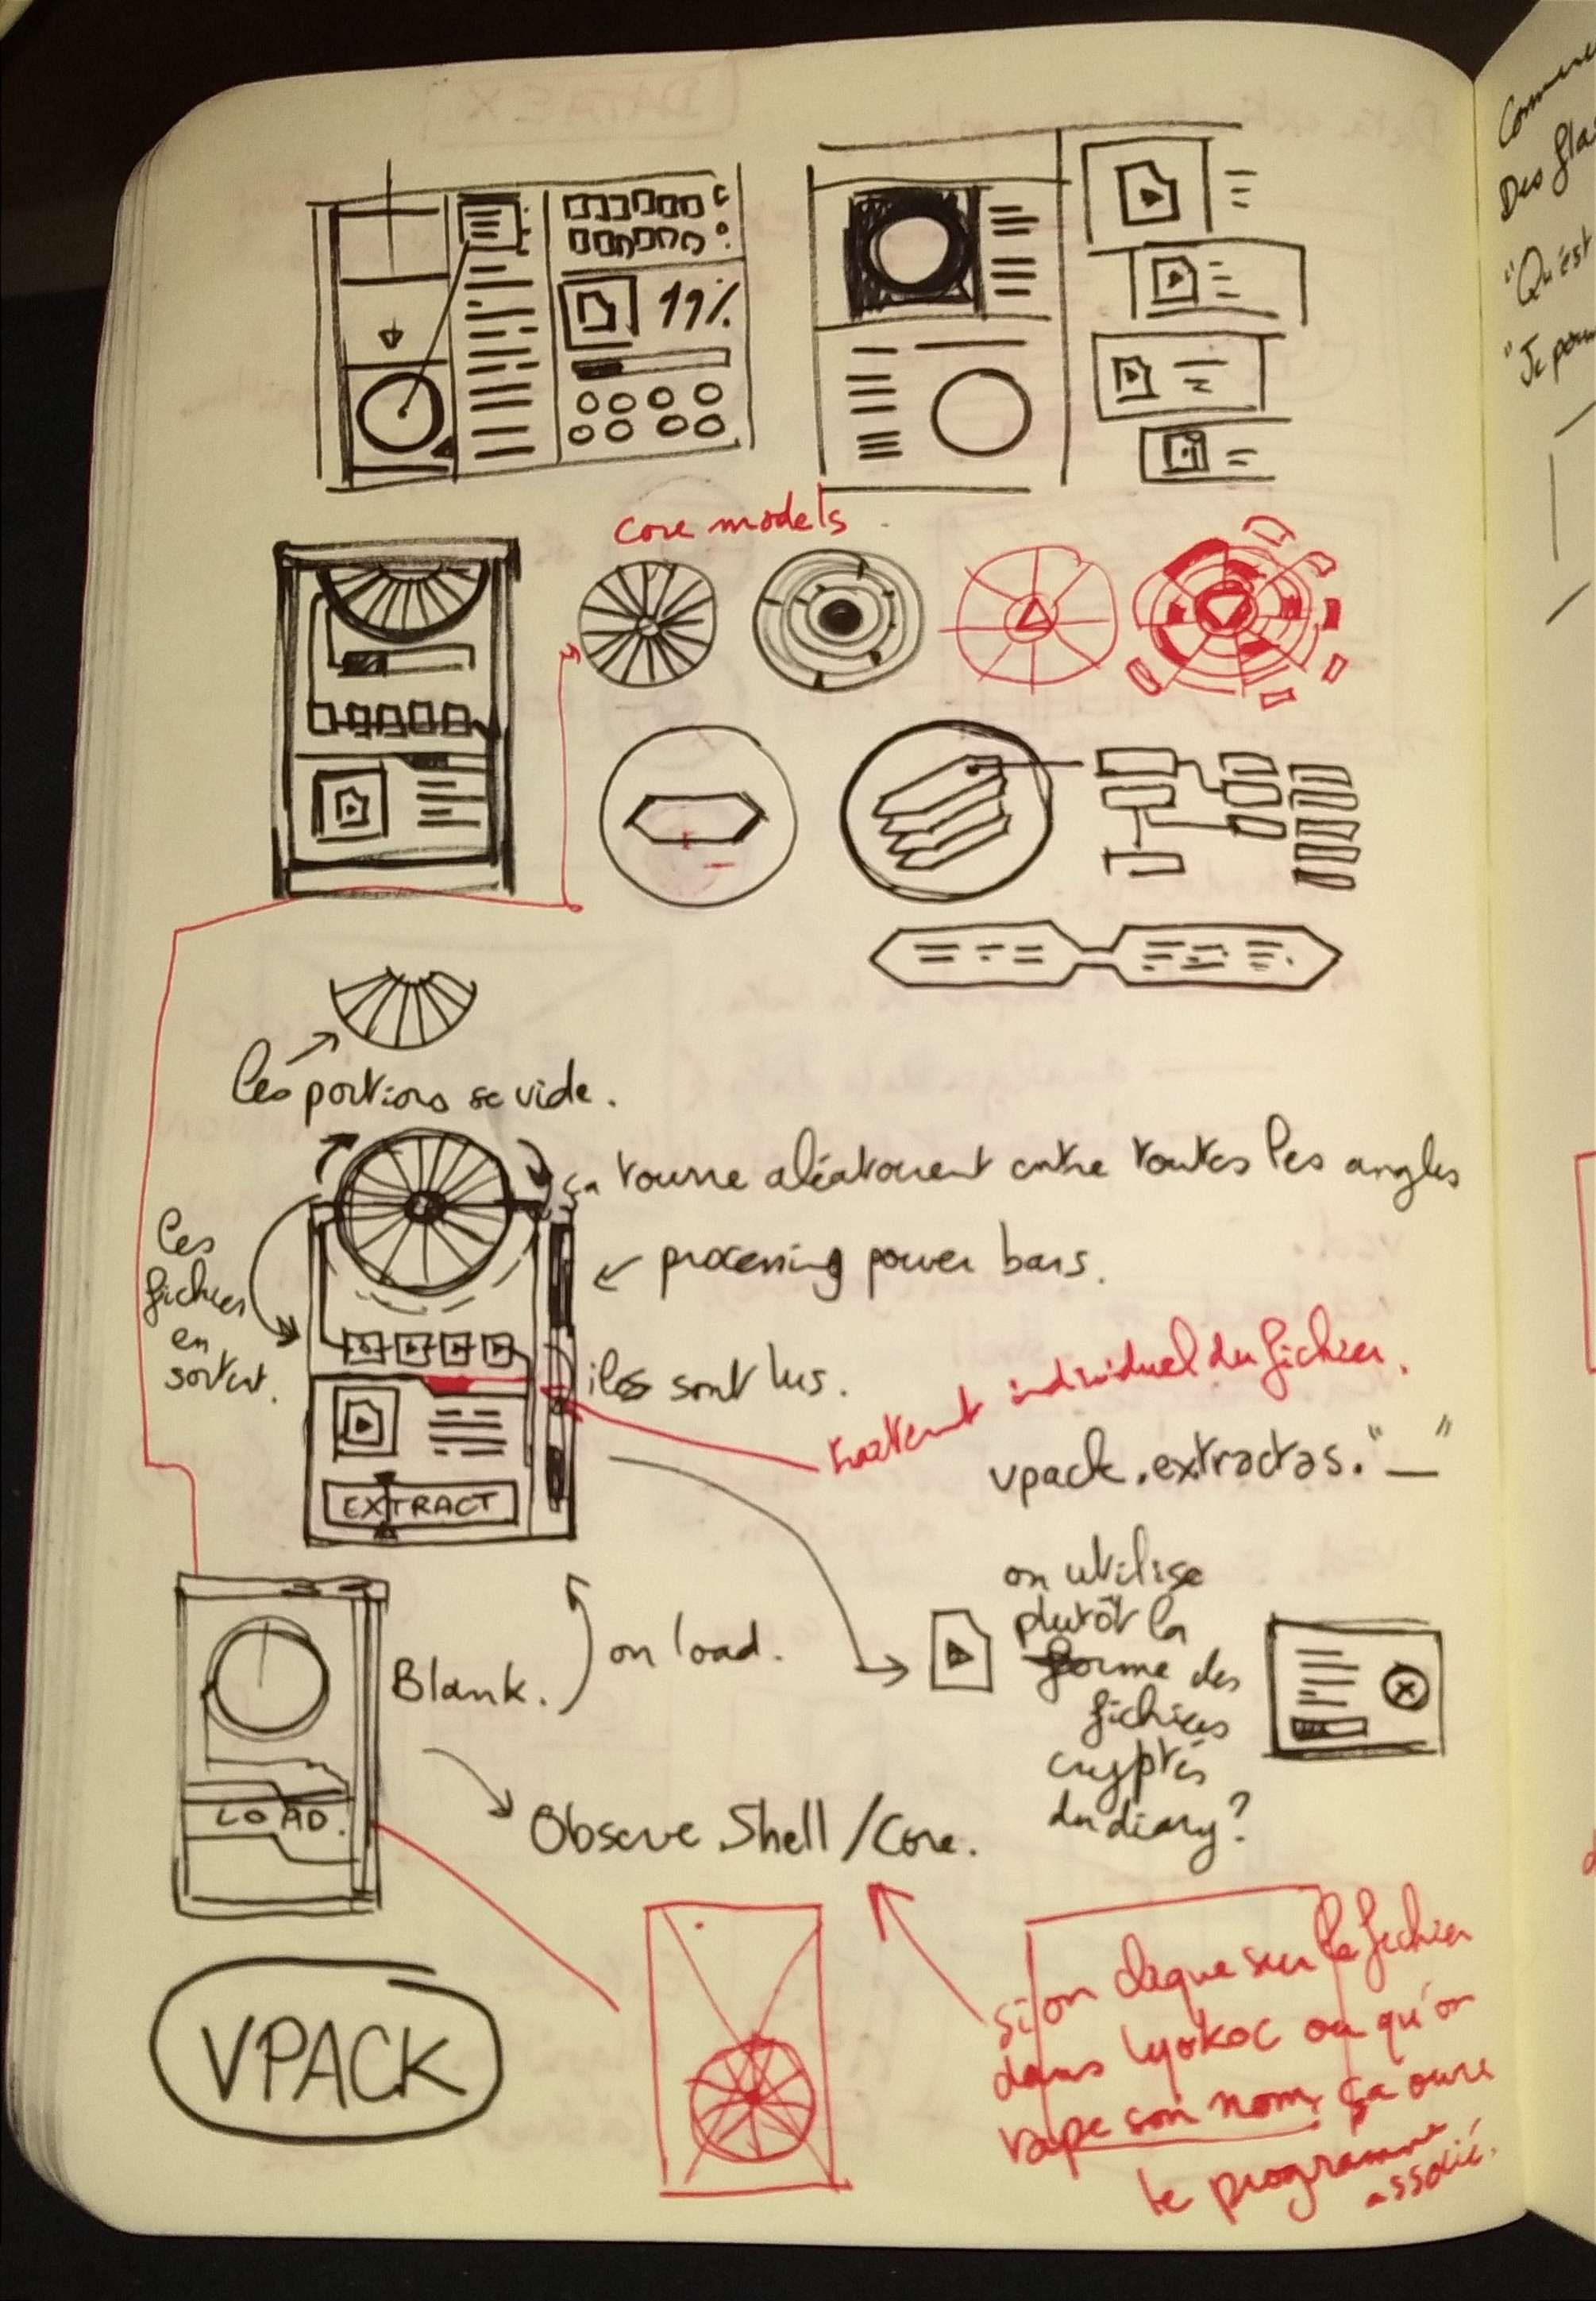 DATAEX
Comme
Des fla
"Qu'est
"Je pou
19%
core models
les portions se vide.
ça tourne aléatoirement entre toutes les angles
les
fichier
en
sortent.
processing power bars.
iles sont lus.
traitement individuel du fichier.
vpack.extractas."_"
EXTRACT
on utilise
plutôt la
forme des
fichiers
cryptés
du diary?
on load.
Blank.
LOAD.
Observe Shell/Core.
si on claque sur le fichier
dans lyokoc ou qu'on
tape son nom, ça ouvre
le programme
associé.
VPACK